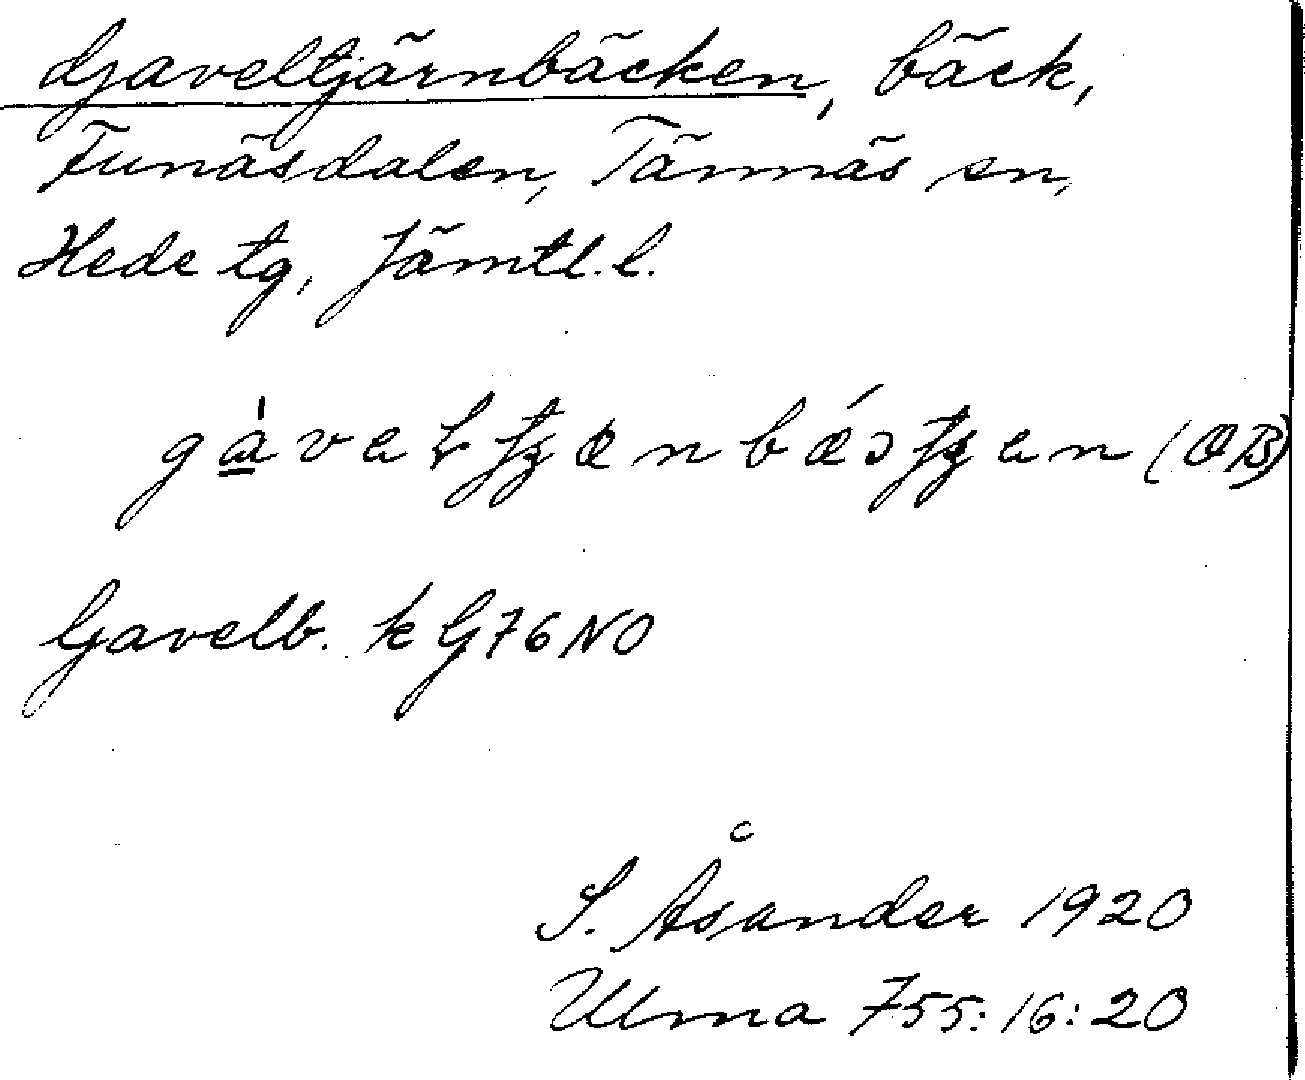 Gaveltjärnbäcken, bäck,
Funäsdalen, Tännäs sn,
Hede tg, Jämtl. l.
(OB)
Gavelb. k G76NO
S. Åsander 1920
Ulma 755:16:20